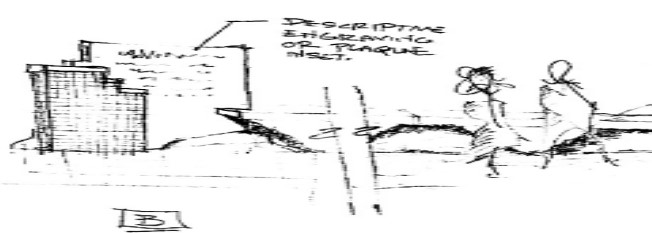 DESCRIPTIVE
ENGRAVING
OR PLAQUE
INSET.
B